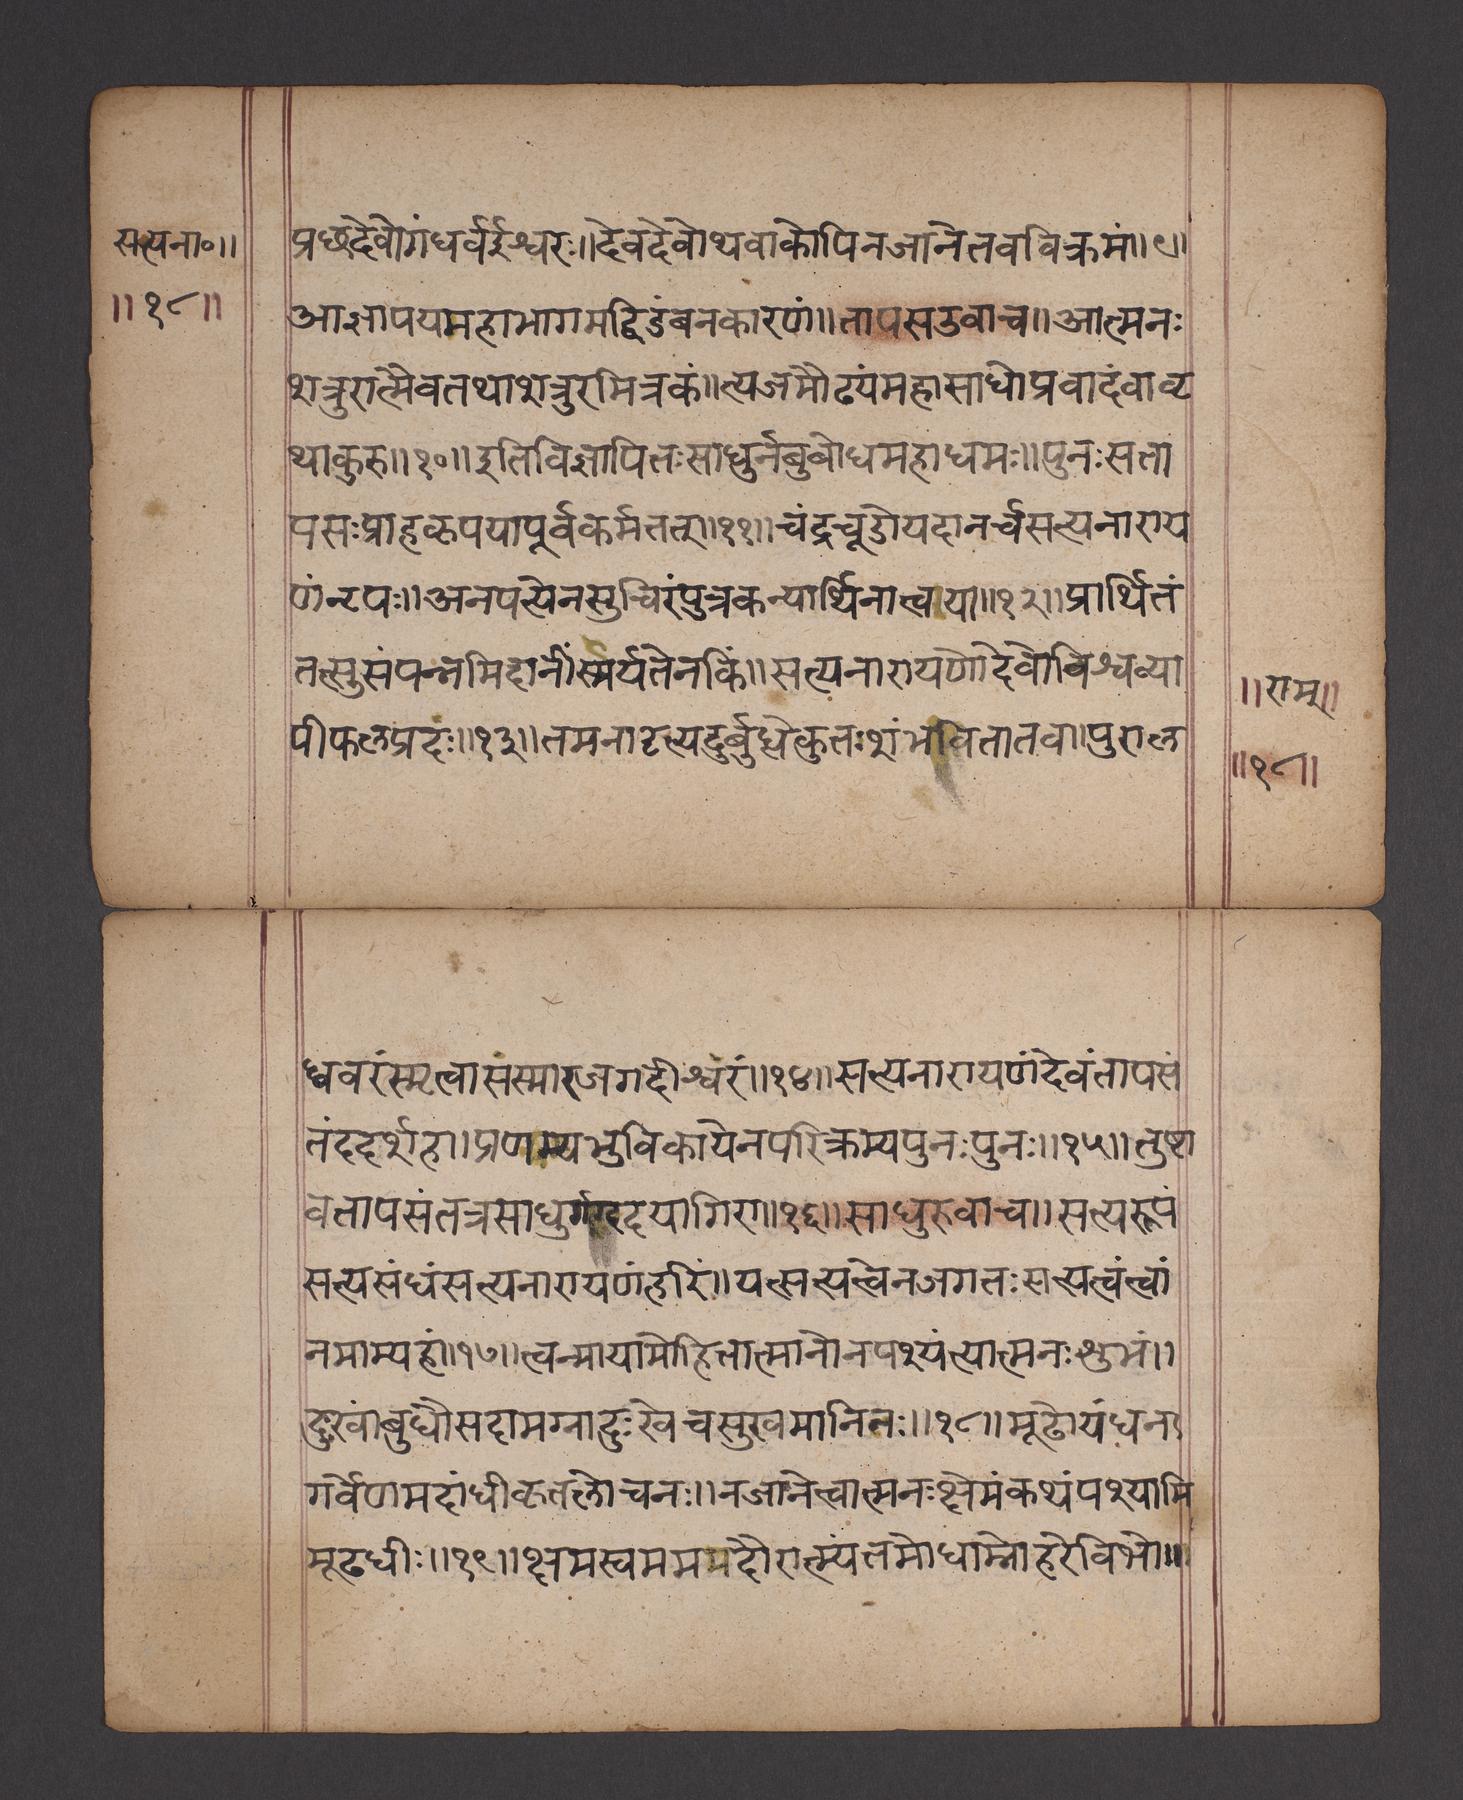 सत्यना०॥
॥१८॥
प्रछदेवोगंधर्वईश्वरः॥देवदेवोथवाकोपिनजानेतवविक्रमं॥९॥
आज्ञापयामहाभागमद्विडंबनकारणं॥तापसउवाच॥आत्मनः
शत्रुरात्मैवतथाशत्रुरमित्रकं॥त्यजमौढ्यंमहासाधोप्रवादंवावृ
थाकुरु॥१०॥इतिविज्ञापितःसाधुर्नबुबोधमहाधमः॥पुनःसता
पसःप्राहकृपयापूर्वकर्मतत्॥११॥चंद्रचूडोयदानर्चसत्यनाराय
णंनृपः॥अनपत्येनसुचिरंपुत्रकन्यार्थिनात्वया॥१२॥प्रार्थितं
तत्सुसंपन्नमिदानींस्मर्यतेनकिं॥सत्यनारायणोदेवोविश्वव्या
पीफलप्रदः॥१३॥तमनादृत्यदुर्बुधेकुतःशंभवितातव॥पुराल
॥राम॥
॥१८॥
ध्ववरंस्मृत्वासस्मारजगदीश्वरं॥१४॥सत्यनारायणंदेवंतापसं
तंददर्शह॥प्रणम्यभुविकायेनपरिक्रम्यपुनःपुनः॥१५॥तुष्टा
वतापसंतत्रसाधुर्गद्गदयागिरा॥१६॥साधुरुवाच॥सत्यरूपं
सत्यसंधंसत्यनारायणंहरिं॥यत्सत्यत्वेनजगतःसत्यत्वंत्वां
नमाम्यहं॥१७॥त्वन्मायामोहितात्मानोनपश्यंत्यात्मनःशुभं॥
दुःखांबुधौसदामग्नादुःखेचसुखमानिनः॥१८॥मूढोयंधन
गर्वेणमदांधीकृतलोचनः॥नजानेत्वात्मनःक्षेमंकथंपश्यामि
मूढधीः॥१९॥क्षमस्वमममदौरात्म्यंतमोधाम्नोहरेविभो॥